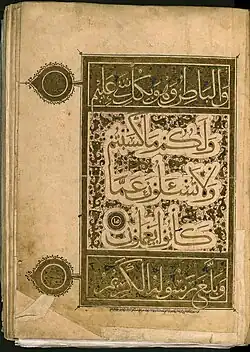 والباطن وهو بكل شئ عليم
ولكم ما كسبتم
ولا تسئلون عما
كانوا يعملون
وبلغ رسوله الكريم